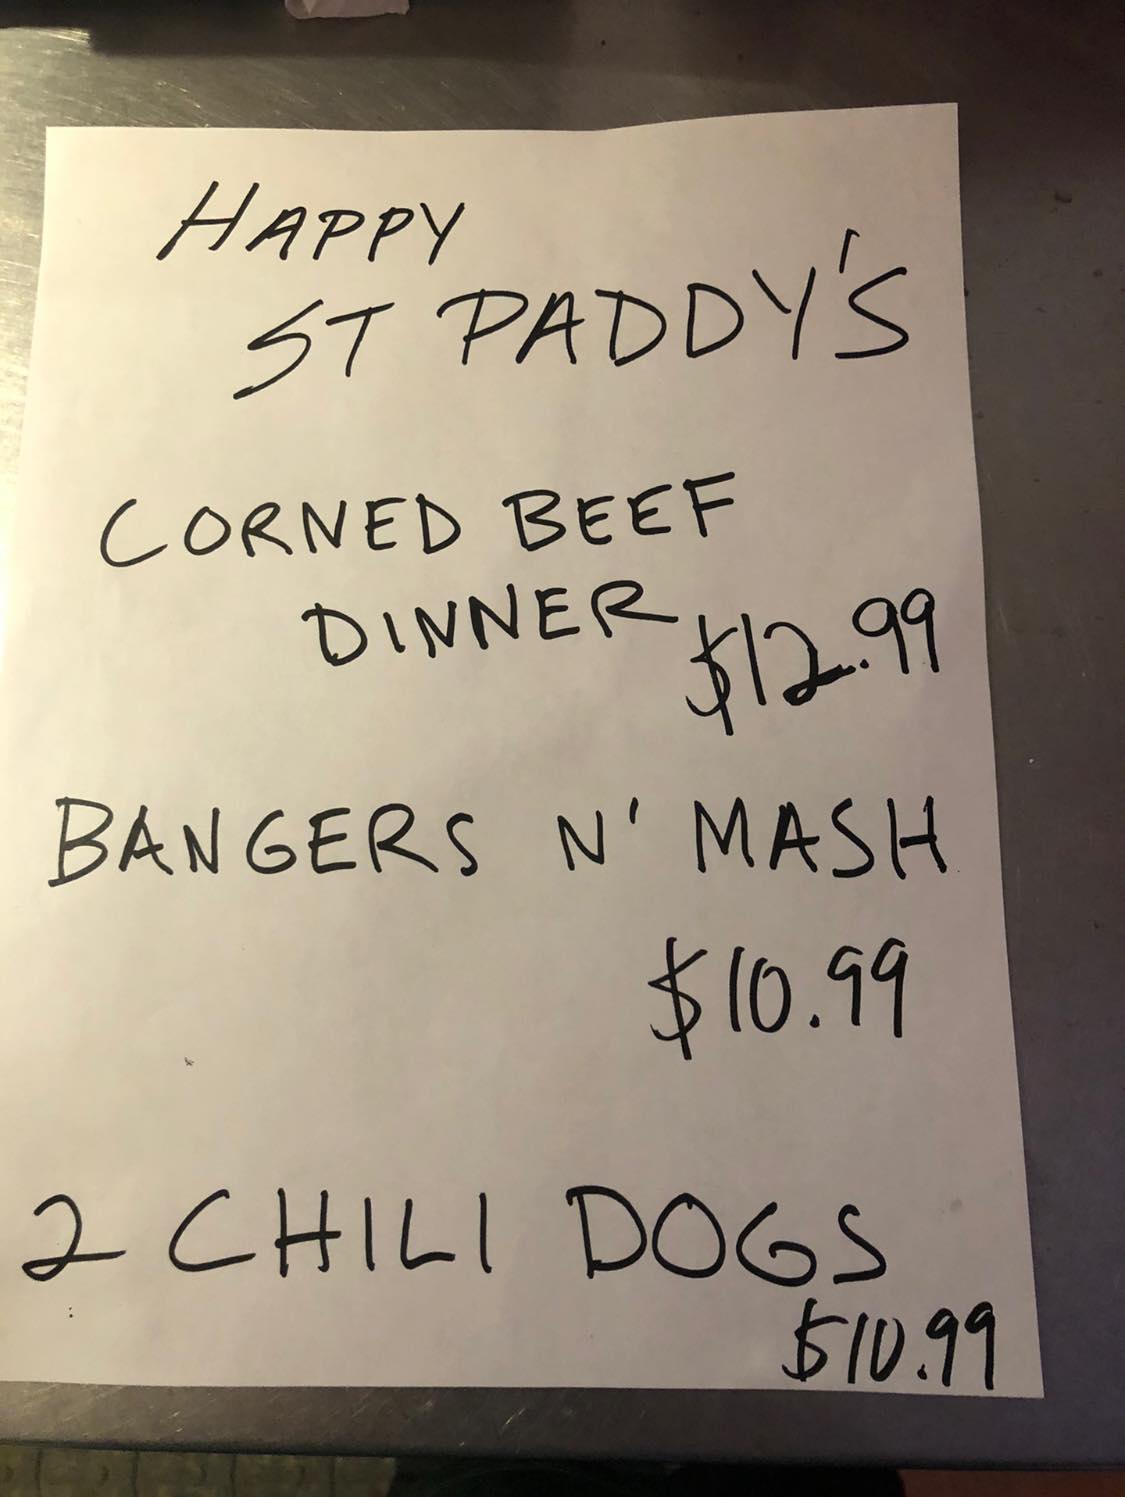 HAPPY
ST PADDY'S
CORNED BEEF
DINNER $12.99
BANGERS N' MASH
$10.99
2 CHILI DOGS
$10.99